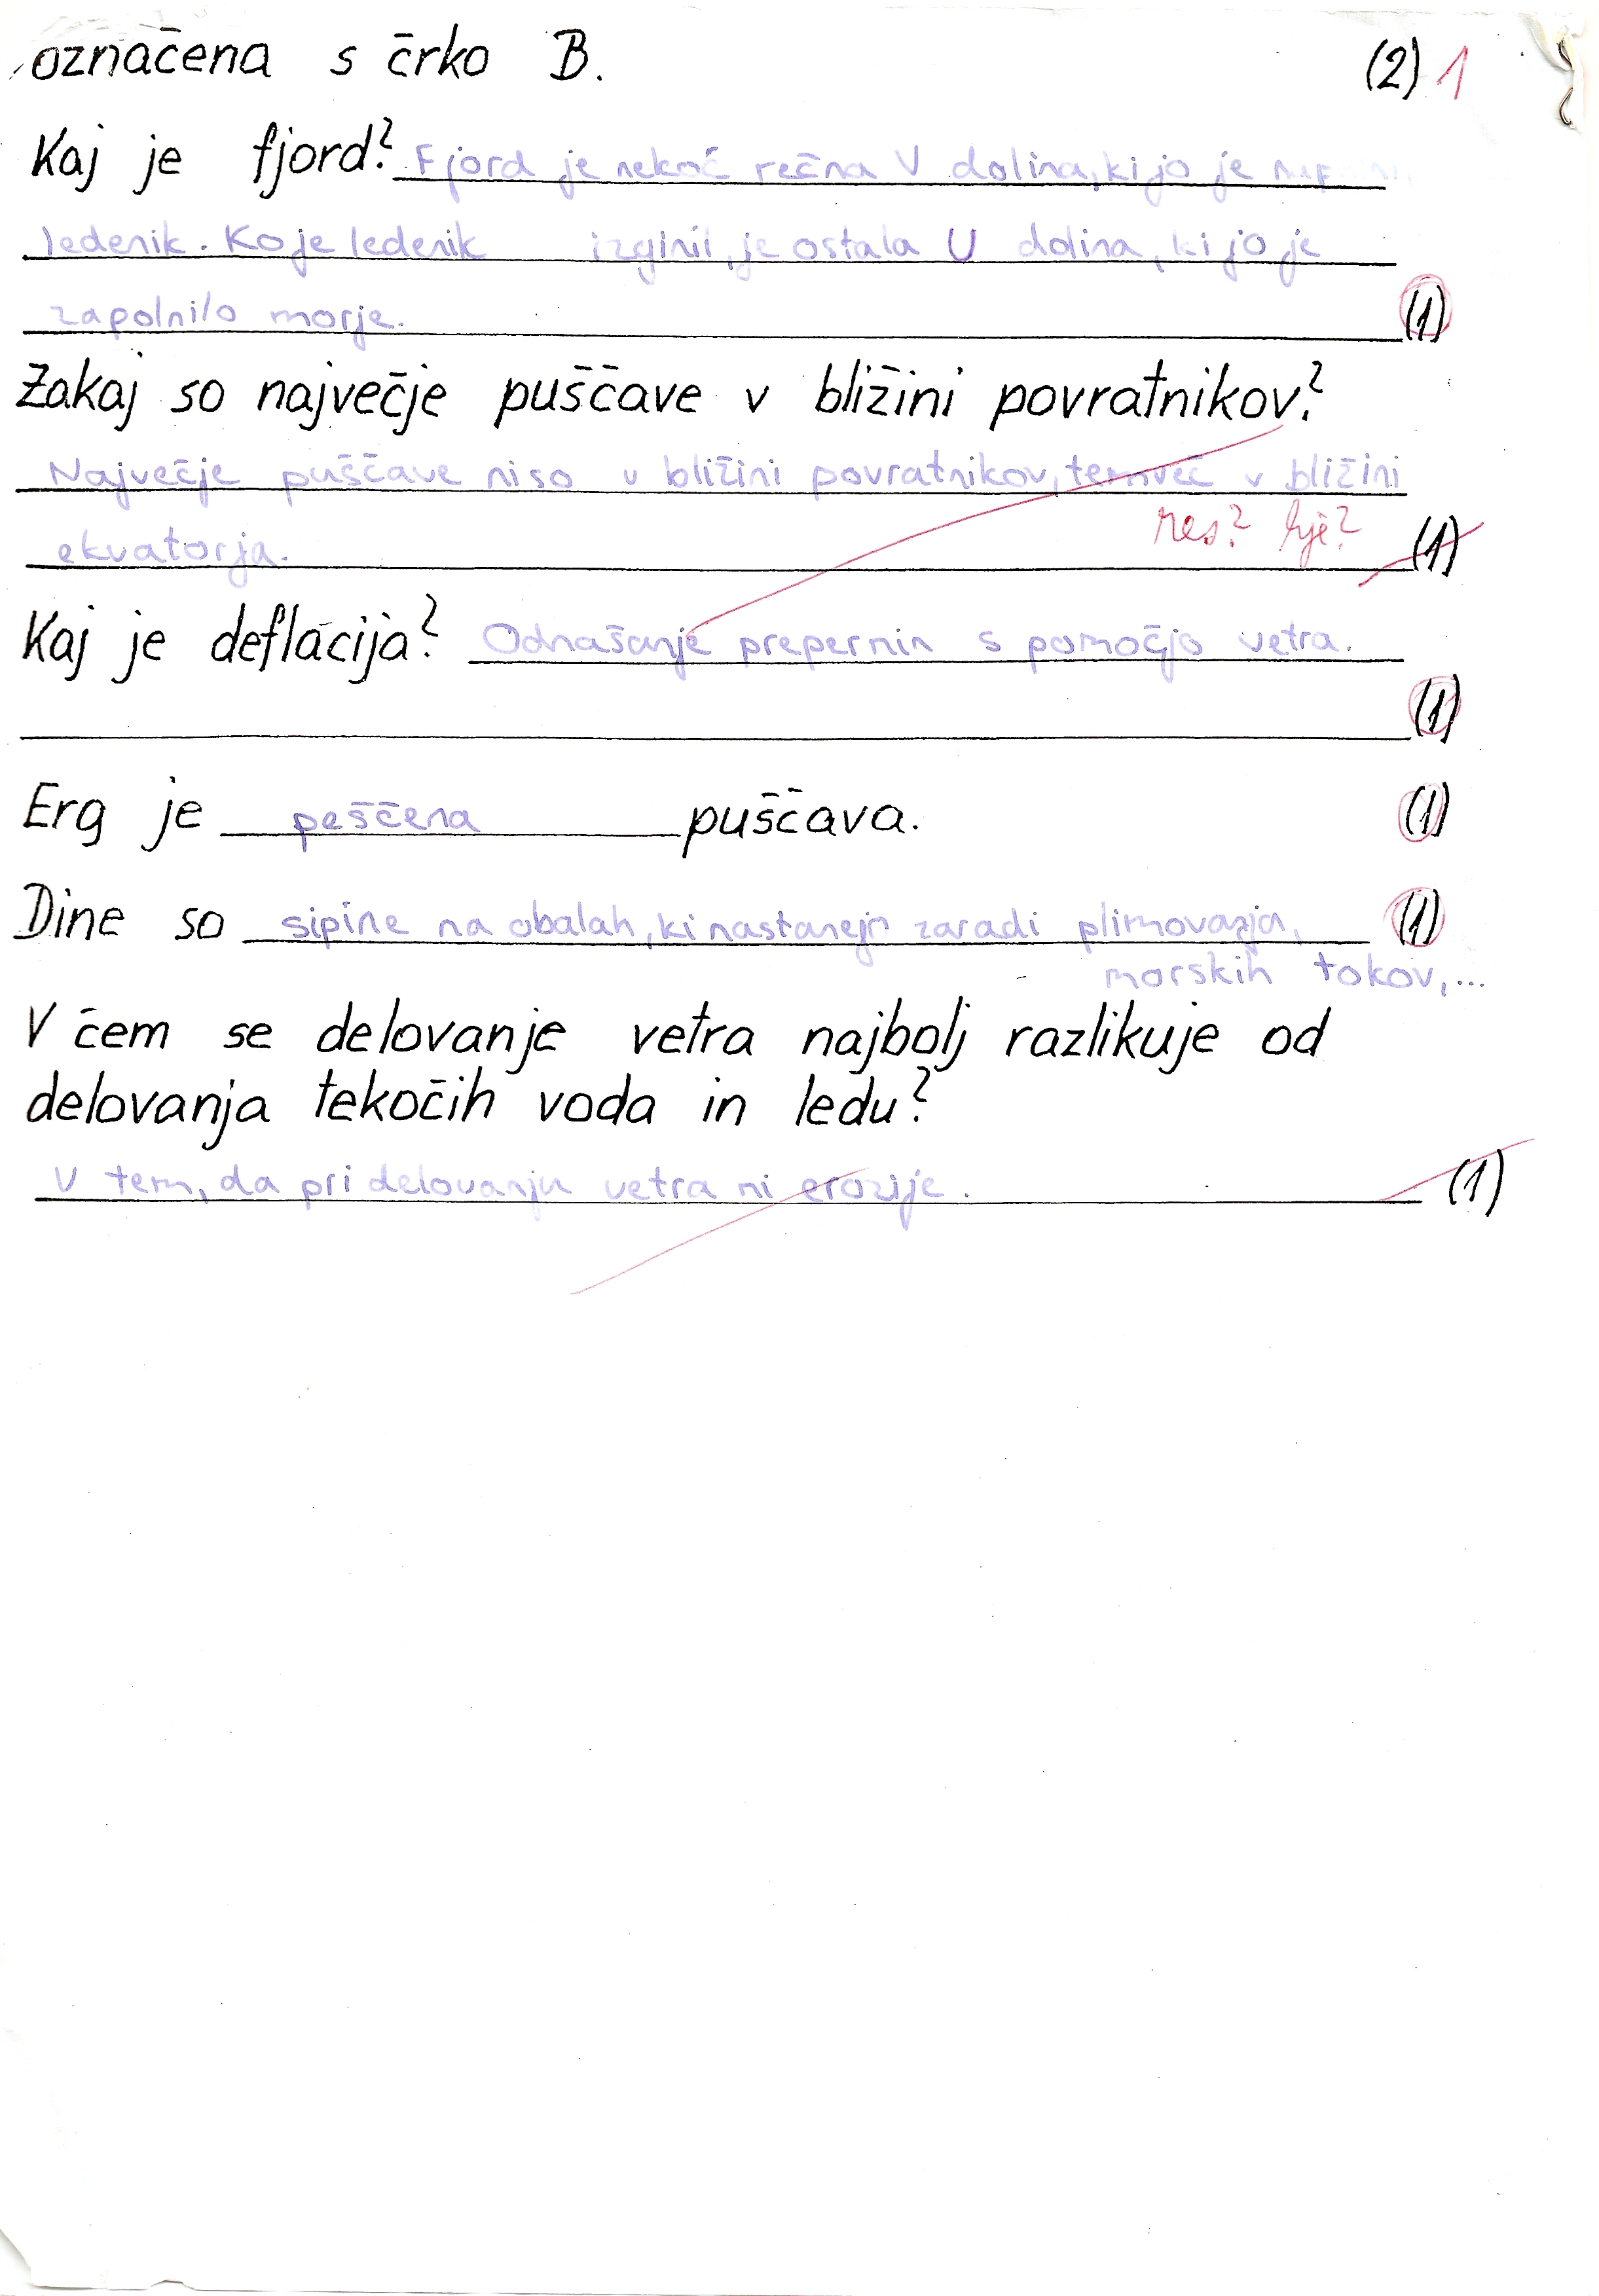 označena s črko B. (2) 1
Kaj je fjord? Fjord je nekoč rečna V dolina, ki jo je
ledenik. Ko je ledenik izginil, je ostala U dolina, ki jo je
zapolnilo morje. (1)
Zakaj so največje puščave v bližini povratnikov?
Največje puščave niso v bližini povratnikov, temveč v bližini
res? kje? (1)
ekvatorja.
Kaj je deflacija? Odnašanje prepernin s pomočjo vetra.
(1)
Erg je peščena puščava. (1)
Dine so sipine na obalah, ki nastanejo zaradi plimovanja, (1)
morskih tokov,...
V čem se delovanje vetra najbolj razlikuje od
delovanja tekočih voda in ledu?
V tem, da pri delovanju vetra ni erozije. (1)